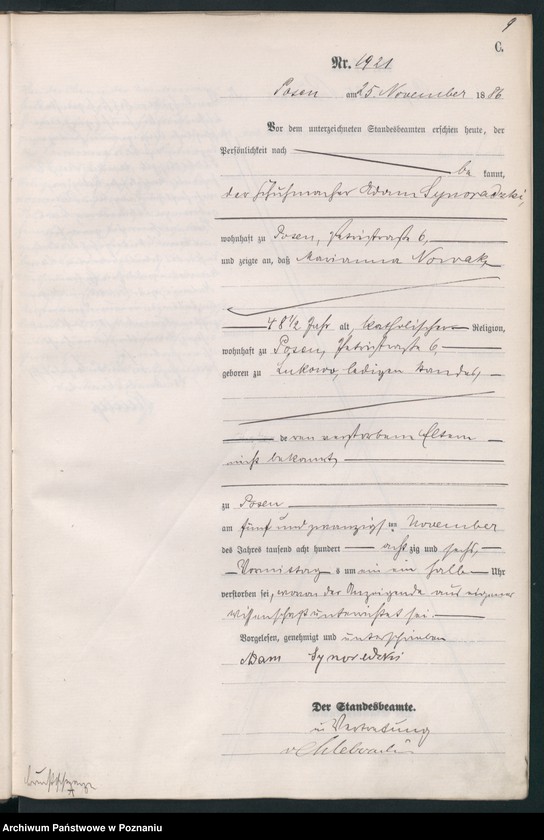 9
C.
Nr. 1921
Posen am 25. November 1886
Vor dem unterzeichneten Standesbeamten erschien heute, der
Persönlichkeit nach
be kannt,
der Schuhmacher Adam Synoradzki,
wohnhaft zu Posen, Petristraße 6,
und zeigte an, daß Marianna Nowak,
48 1/2 Jahr alt, katholischer Religion,
wohnhaft zu Posen, Petristraße 6,
geboren zu Lukowo, ledigen Standes,
deren verstorbene Eltern
nicht bekannt,
zu Posen
am fünf und zwanzigsten November
des Jahres tausend acht hundert achtzig und sechs,
Vormittags um ein halb Uhr
verstorben sei, wovon der Anzeigende aus eigener
Wissenschaft unterrichtet sei.
Vorgelesen, genehmigt und unterschrieben
Adam Synoredzki
Der Standesbeamte.
in Vertretung
Archiwum Państwowe w Poznaniu